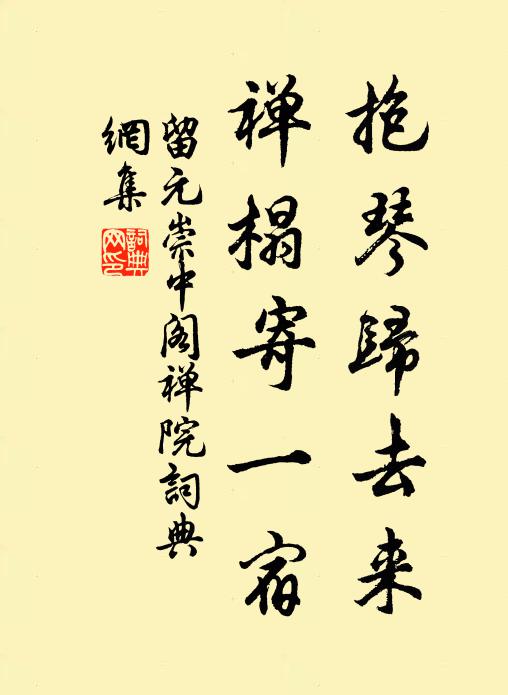 抱琴歸去来
禅榻寄一宿
留元崇中阁禅院詞典
網集
詞典網印